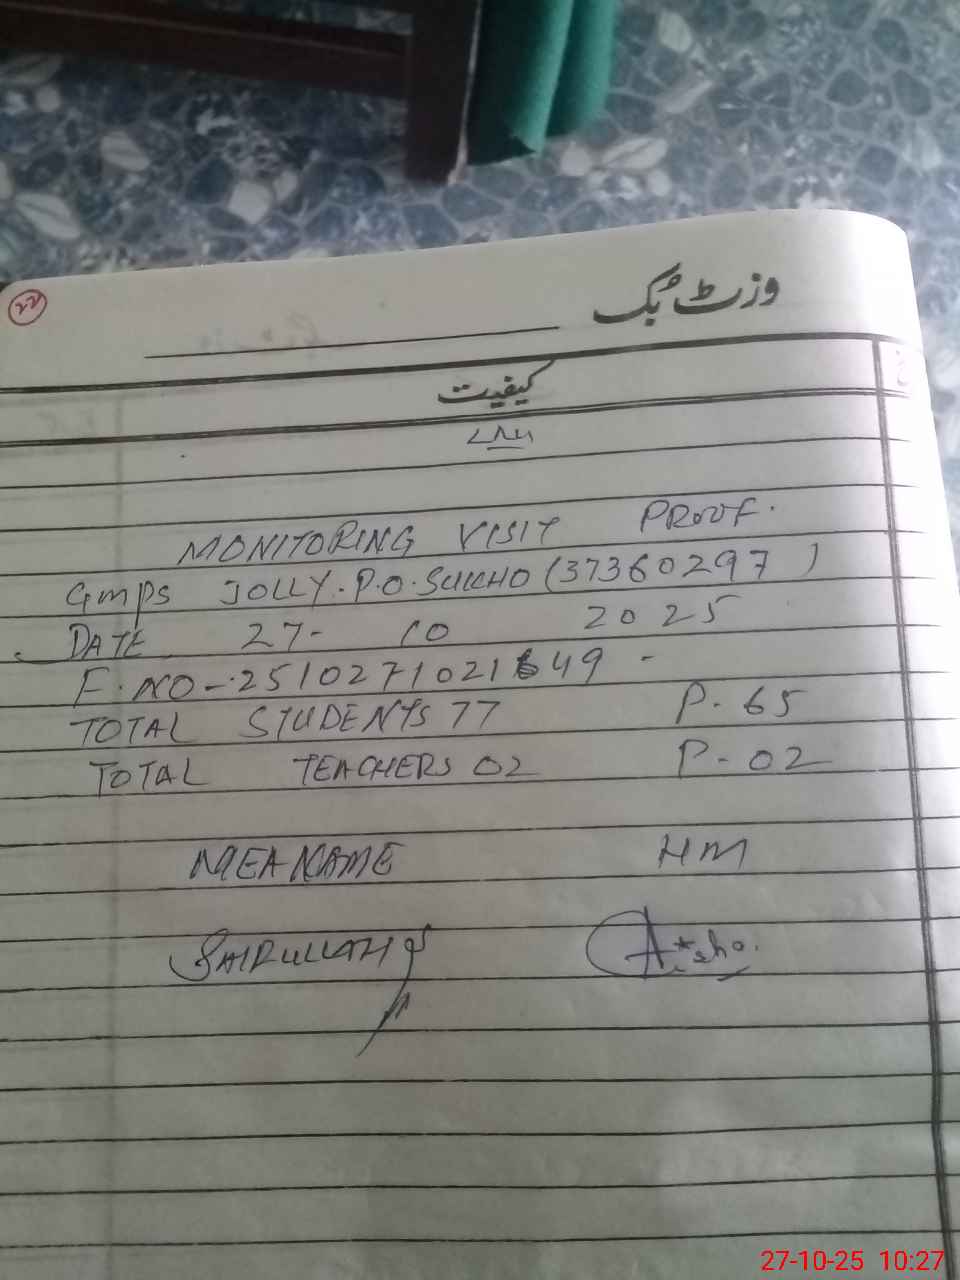 ۲۲
وزٹ بک
کیفیت
MONITORING VISIT PROOF.
GMPS JOLLY.P.O.SUKHO (37360297)
DATE 27- 10 2025
F.NO-2510271021649-
TOTAL STUDENTS 77 P. 65
TOTAL TEACHERS 02 P-02
MEA NAME HM
Aisha.
27-10-25 10:27